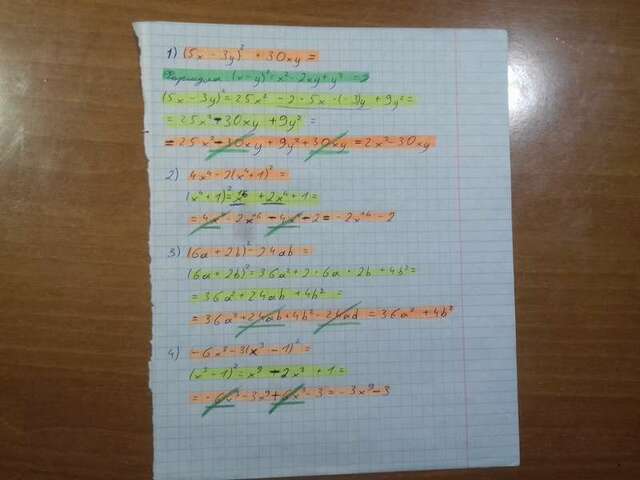 1) (5x - 3y)² + 30xy =
(x - y)² = x² - 2xy + y² =>
(5x - 3y)² = 25x² - 2 · 5x · (-3y) + 9y² =
= 25x² - 30xy + 9y² =
= 25x² - 30xy + 9y² + 30xy = 2x² - 30xy
2) 4x² - 2(x² + 1)² =
(x² + 1)² = x⁴ + 2x² + 1 =
= 4x² - 2x⁴ - 4x² - 2 = - 2x⁴ - 2
3) (6a + 2b)² - 24ab =
(6a + 2b)² = 36a² + 2 · 6a · 2b + 4b² =
= 36a² + 24ab + 4b² =
= 36a² + 24ab + 4b² - 24ab = 36a² + 4b²
4) - 6x² - 3(x² - 1)² =
(x² - 1)² = x⁴ - 2x² + 1 =
= - 6x² - 3x⁴ + 6x² - 3 = - 3x⁴ - 3